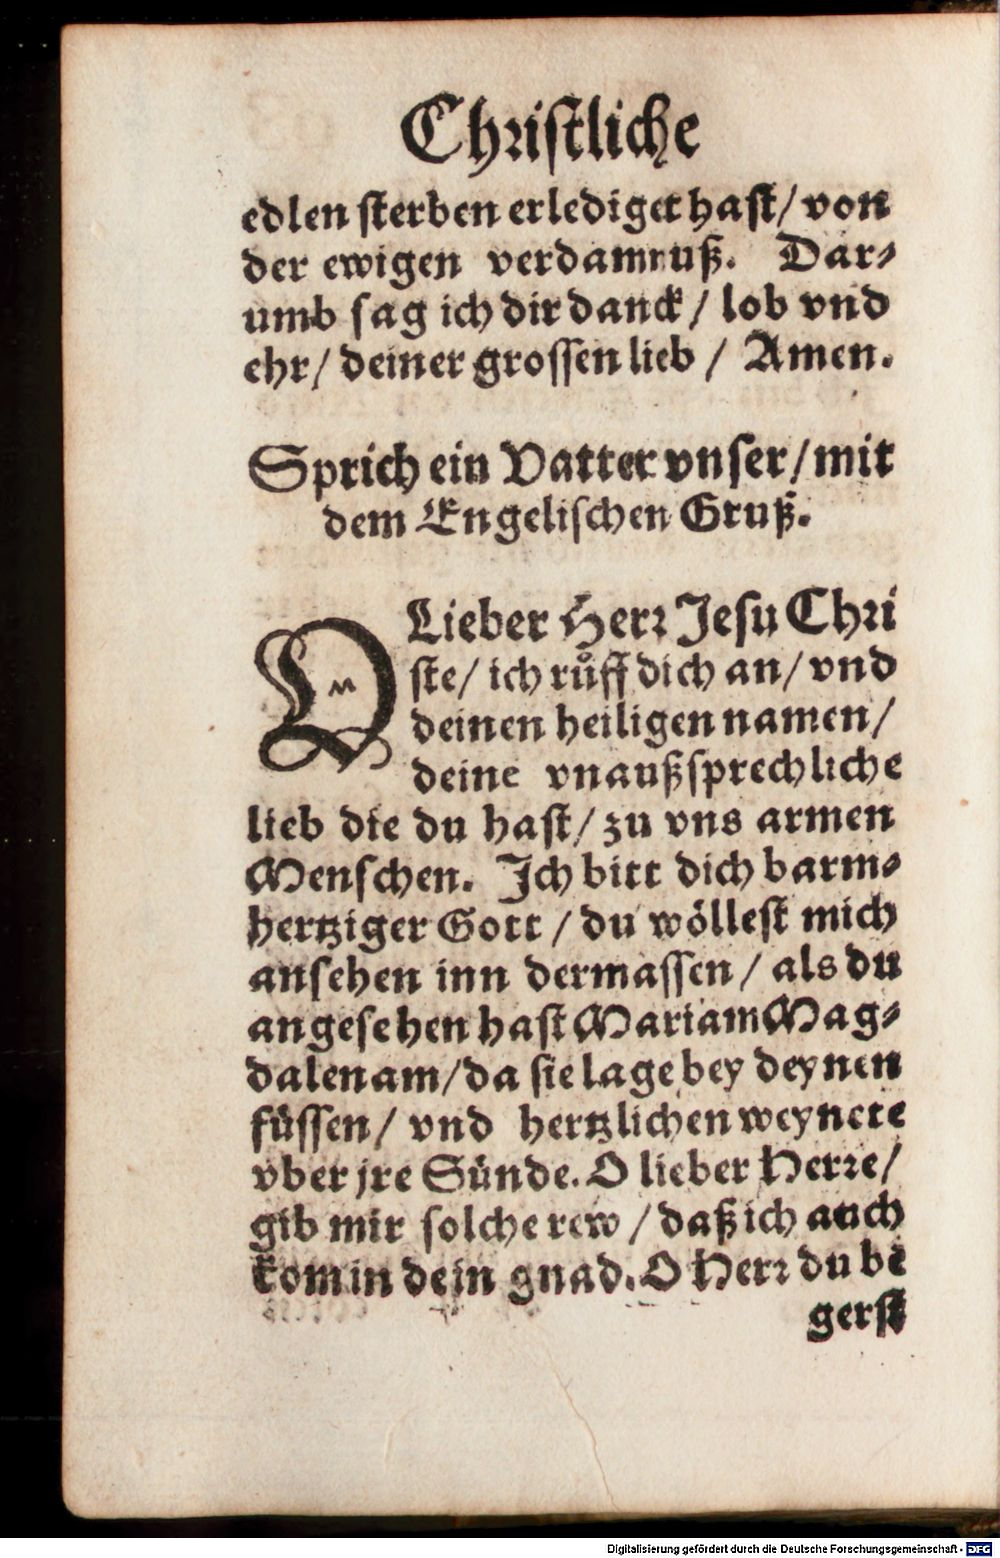 Christliche
edlen sterben erlediget hast/ von
der ewigen verdamnuß. Dar-
umb sag ich dir danck / lob vnd
ehr/ deiner grossen lieb / Amen.
Sprich ein Vatter vnser/ mit
dem Engelischen Gruß.
O Lieber Herr Jesu Chri
ste/ ich růff dich an/ vnd
deinen heiligen namen/
deine vnaußsprechliche
lieb die du hast/ zu vns armen
Menschen. Ich bitt dich barm-
hertziger Gott / du wöllest mich
ansehen inn dermassen / als du
angesehen hast Mariam Mag-
dalenam/ da sie lage bey deynen
füssen/ vnd hertzlichen weynete
vber jre Sünde. O lieber Herre/
gib mir solche rew / daß ich auch
kom in dein gnad. O Herr du be
gerst
Digitalisierung gefördert durch die Deutsche Forschungsgemeinschaft - DFG